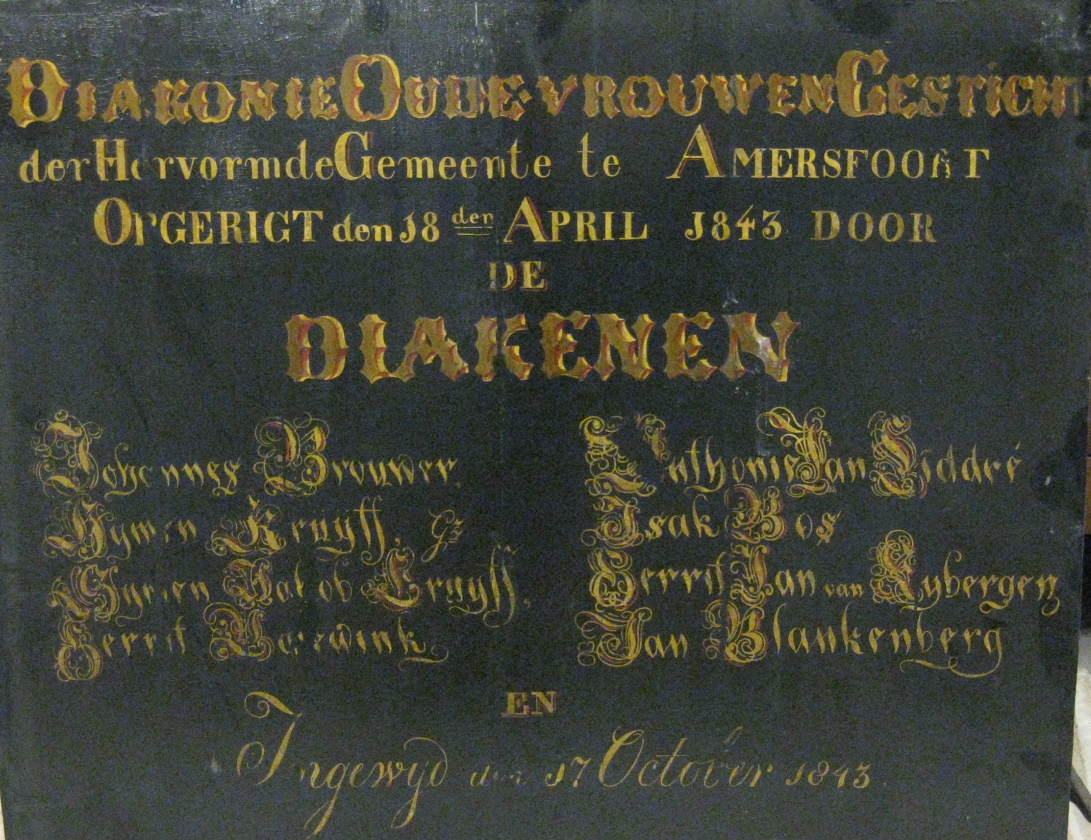 DIAKONIE OUDE-VROUWEN GESTICHT
der Hervormde Gemeente te AMERSFOORT
OPGERIGT den 18 den APRIL 1843 DOOR
DE
DIAKENEN
Johannes Brouwer,
Hymen Kruyff, Gz
Gysen Jakob Kruyff,
Gerrit
Anthonie Jan Siddré
Isak Bos
Gerrit Jan van Rybergen
Jan Blankenberg
EN
Ingewyd den 17 October 1843.